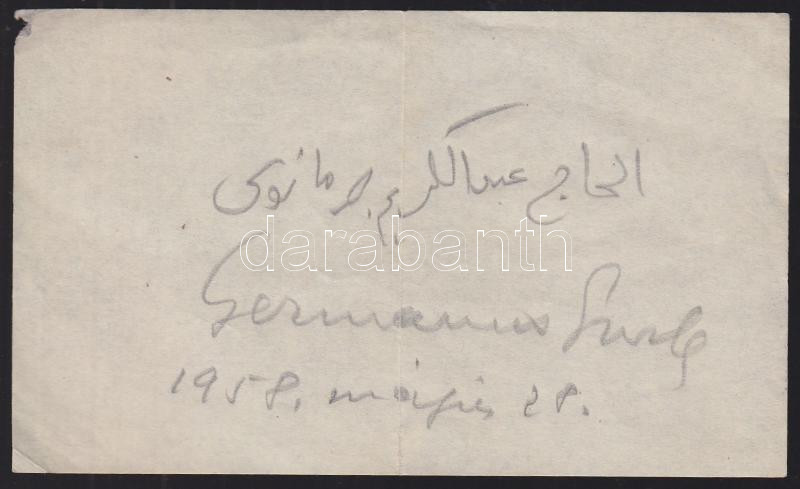 الحاج عبدالكريم جرمانوس
darabanth
Germanus Gyula
1958. május 28.